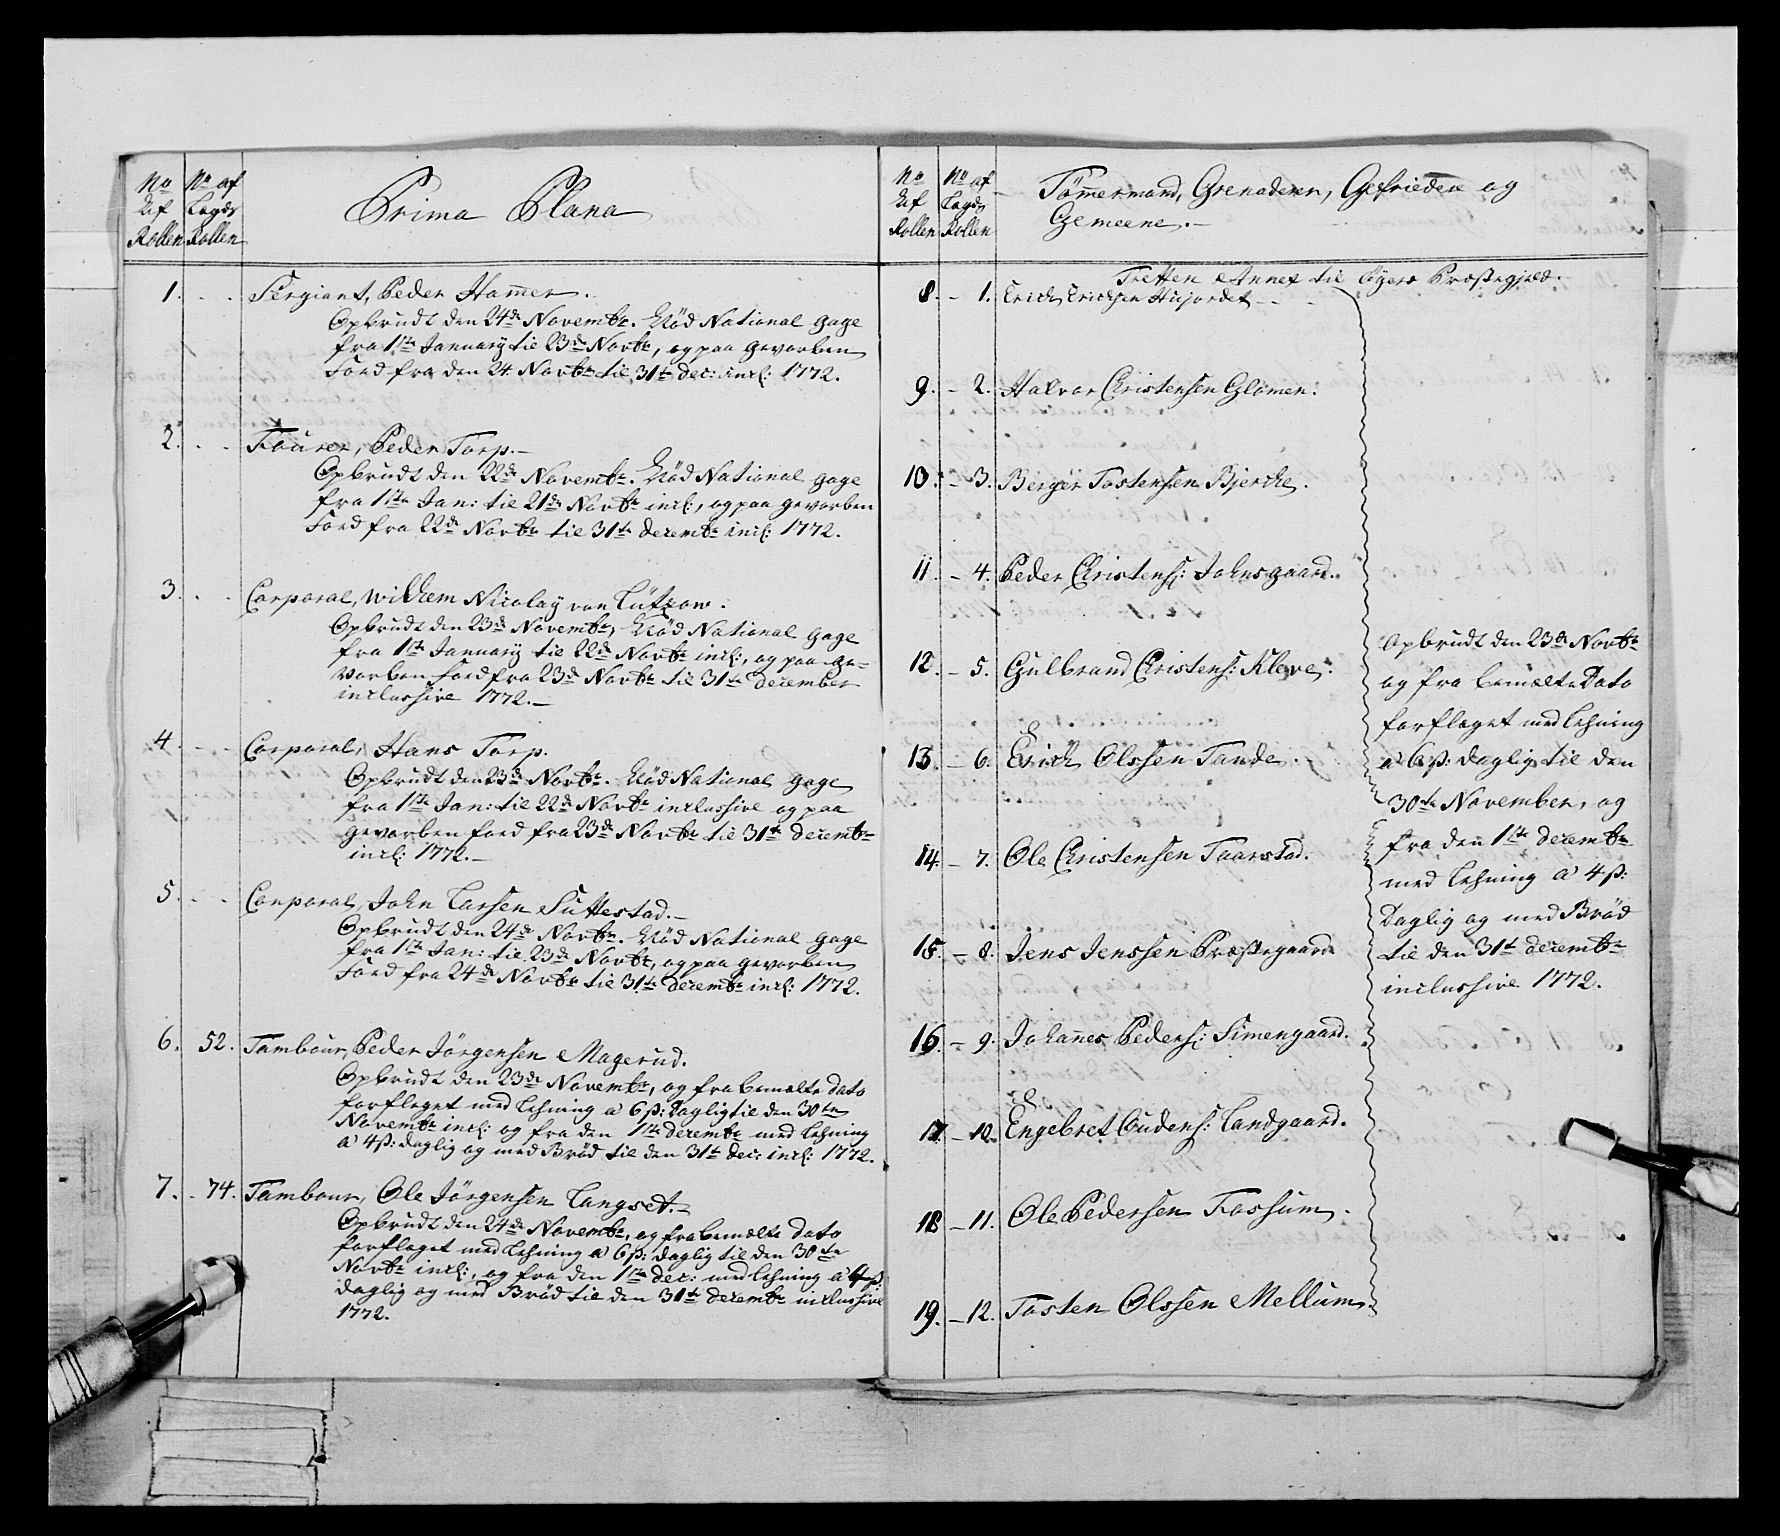 No
Af
Rollen
No af
Lægds
Rollen
Prima Plana
1. Sergiant, Peder Hamer.
Opbrudt den 24de Novembr. Nød National gage
fra 1ste January til 23de Novbr, og paa gevorben
Foed fra den 24. Novbr til 31te dec: incl: 1772.
2. Fourer, Peder Torp.
Opbrudt den 22de Novembr. Nød National gage
fra 1ste Jan: til 21de Novbr incl:, og paa gevorben
Foed fra 22de Novbr til 31te decembr incl: 1772.
3. Corporal, Wilhem Nicolay von Lützow.
Opbrudt den 23de Novembr, Nød National gage
fra 1ste January til 22de Novbr incl:, og paa ge-
vorben Foed fra 23de Novbr til 31te december
inclussive 1772.
4. Corporal, Hans Torp.
Opbrudt den 23de Novbr. Nød National gage
fra 1ste Jan: til 22de Novbr inclussive og paa
gevorben foed fra 23de Novbr til 31te decembr
incl: 1772.
5. Corporal, John Larsen Suttestad.
Opbrudt den 24de Novbr. Nød National gage
fra 1ste Jan: til 23de Novbr, og paa gevorben
Foed fra 24de Novbr til 31te decembr incl: 1772.
6. 52. Tambour, Peder Jörgensen Magerud.
Opbrudt den 23de Novembr, og fra bemælte dato
forfleget med Lehning a 6 ß: daglig til den 30te
Novembr incl: og fra den 1ste decembr med Lehning
a 4 ß: daglig og med Brød til den 31te dec: incl: 1772.
7. 74. Tambour, Ole Jörgensen Langset.
Opbrudt den 24de Novembr, og fra bemælte dato
forfleget med Lehning a 6 ß: daglig til den 30te
Novbr incl:, og fra den 1ste dec: med Lehning a 4 ß:
daglig og med Brød til den 31te decembr inclussive
1772.
No
Af
Rollen
No af
Lægds
Rollen
Tömermand, Grenaderer, Gefriedere og
Gemeene.
Tretten Annex til Øyers Præstegjeld.
8. 1. Erich Erichsen
9. 2. Halvor Christensen Glomen.
10. 3. Berger Tostensen Bjerche.
11. 4. Peder Christens: Johnsgaard.
12. 5. Gulbrand Christens: Kleve.
13. 6. Erich Olssen Tande.
14. 7. Ole Christensen Taarstad.
15. 8. Jens Jenssen Præstegaard
16. 9. Johanes Peders: Simengaard.
17. 10. Engebret Gudens: Landgaard.
18. 11. Ole Pedersen Fossum.
19. 12. Tosten Olssen Mellum
Opbrudt den 23de Novbr
og fra bemælte Dato
forfleget med Lehning
a 6 ß: daglig til den
30te November, og
fra den 1ste decembr
med Lehning a 4 ß:
Daglig og med Brød
til den 31te decembr
inclussive 1772.